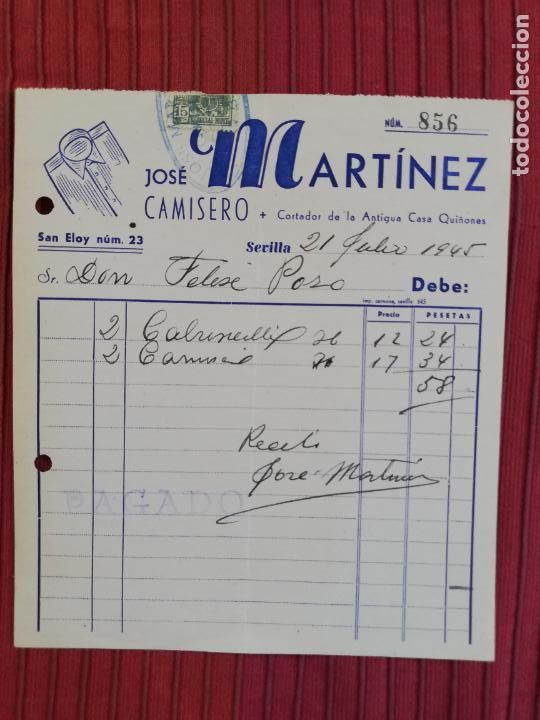 15
NÚM. 856
JOSÉ MARTÍNEZ
CAMISERO + Cortador de la Antigua Casa Quiñones
San Eloy núm. 23
Sevilla 21 Julio 1945
Sr. Don Felise Poso Debe:
imp. carmona, sevilla 645
Precio PESETAS
2 12 24
2 17 34
58
Recibi
Jose Martinez
PAGADO
todocoleccion.net